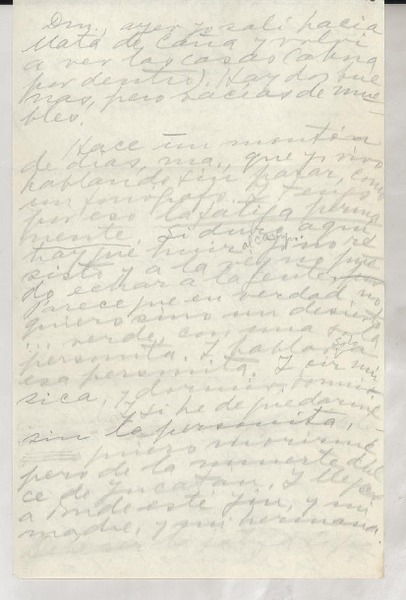 Dm., ayer yo salí hacia
Mata de Caña y volví
a ver las casas (ahora
por dentro). Hay dos bue
nas, pero vacías de mue
bles.
Hace un montón
de días, ma., que yo vivo
hablando sin parar, como
un fonógrafo. Y tengo
por eso la fatiga perma
nente. Si duro aquí,
hay que huir a casa. yo no re
sisto y a la vez no pue
do echar a la gente.
Parece que en verdad no
quiero sino un desierto
... verde, con una sola
personita. Y hablar a
esa personita. Y oír mú
sica, y dormir,
Y si he de quedarme
sin la personita,
quiero morirme
pero de la muerte dul
ce de Yucatán. Y llegar
a donde esté Yin, y mi
madre, y mi hermana.